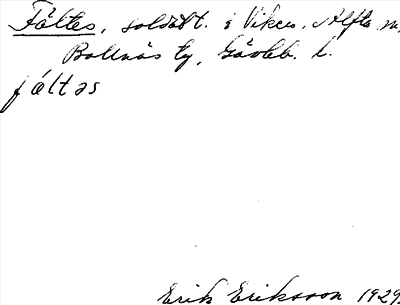 Fältes, soldatt. i Vikes, Alfta sn,
Bollnäs tg, Gävleb. l.
fältəs
Erik Eriksson 1929.